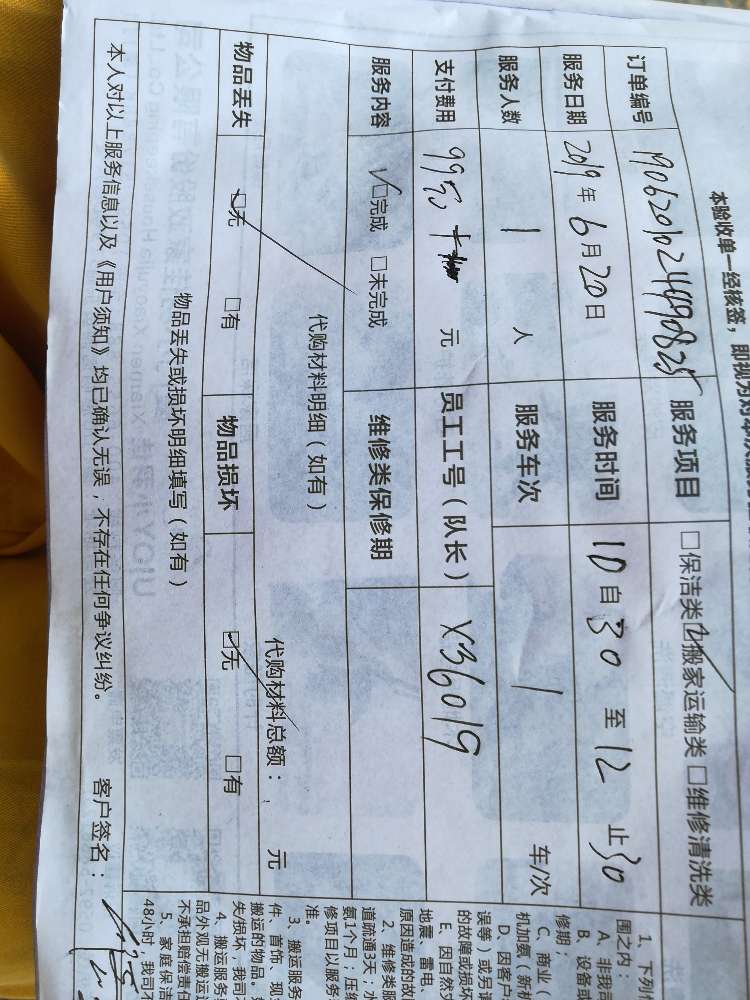 本验收单一经核签，即视为对本次服
订单编号 190620102449082 服务项目 □保洁类 ☑搬家运输类 □维修清洗类
服务日期 2019年6月20日 服务时间 10自30至12止30
服务人数 1 人 服务车次 1 车/次
支付费用 元 员工工号（队长） X36019
服务内容 ☑完成 □未完成 维修类保修期
代购材料明细（如有） 代购材料总额： 元
物品丢失 ☑无 □有 物品损坏 ☑无 □有
物品丢失或损坏明细填写（如有）
本人对以上服务信息以及《用户须知》均已确认无误，不存在任何争议纠纷。 客户签名：
1、下列
围之内：
A、非我司
B、设备或
修期；
C、商业（
机加氨（新机
D、因客户
误等）或另请
的故障或损坏
E、因自然灾
地震、雷电、
原因造成的故
2、维修类服
道疏通3天；水
氨1个月；压缩
修项目以服务
准。
3、搬运服务
件、首饰、现
搬运的物品。
失/损坏，我司不
4、搬运服务
品外观无搬运
不承担赔偿责任
5、家庭保洁
48小时，我司不